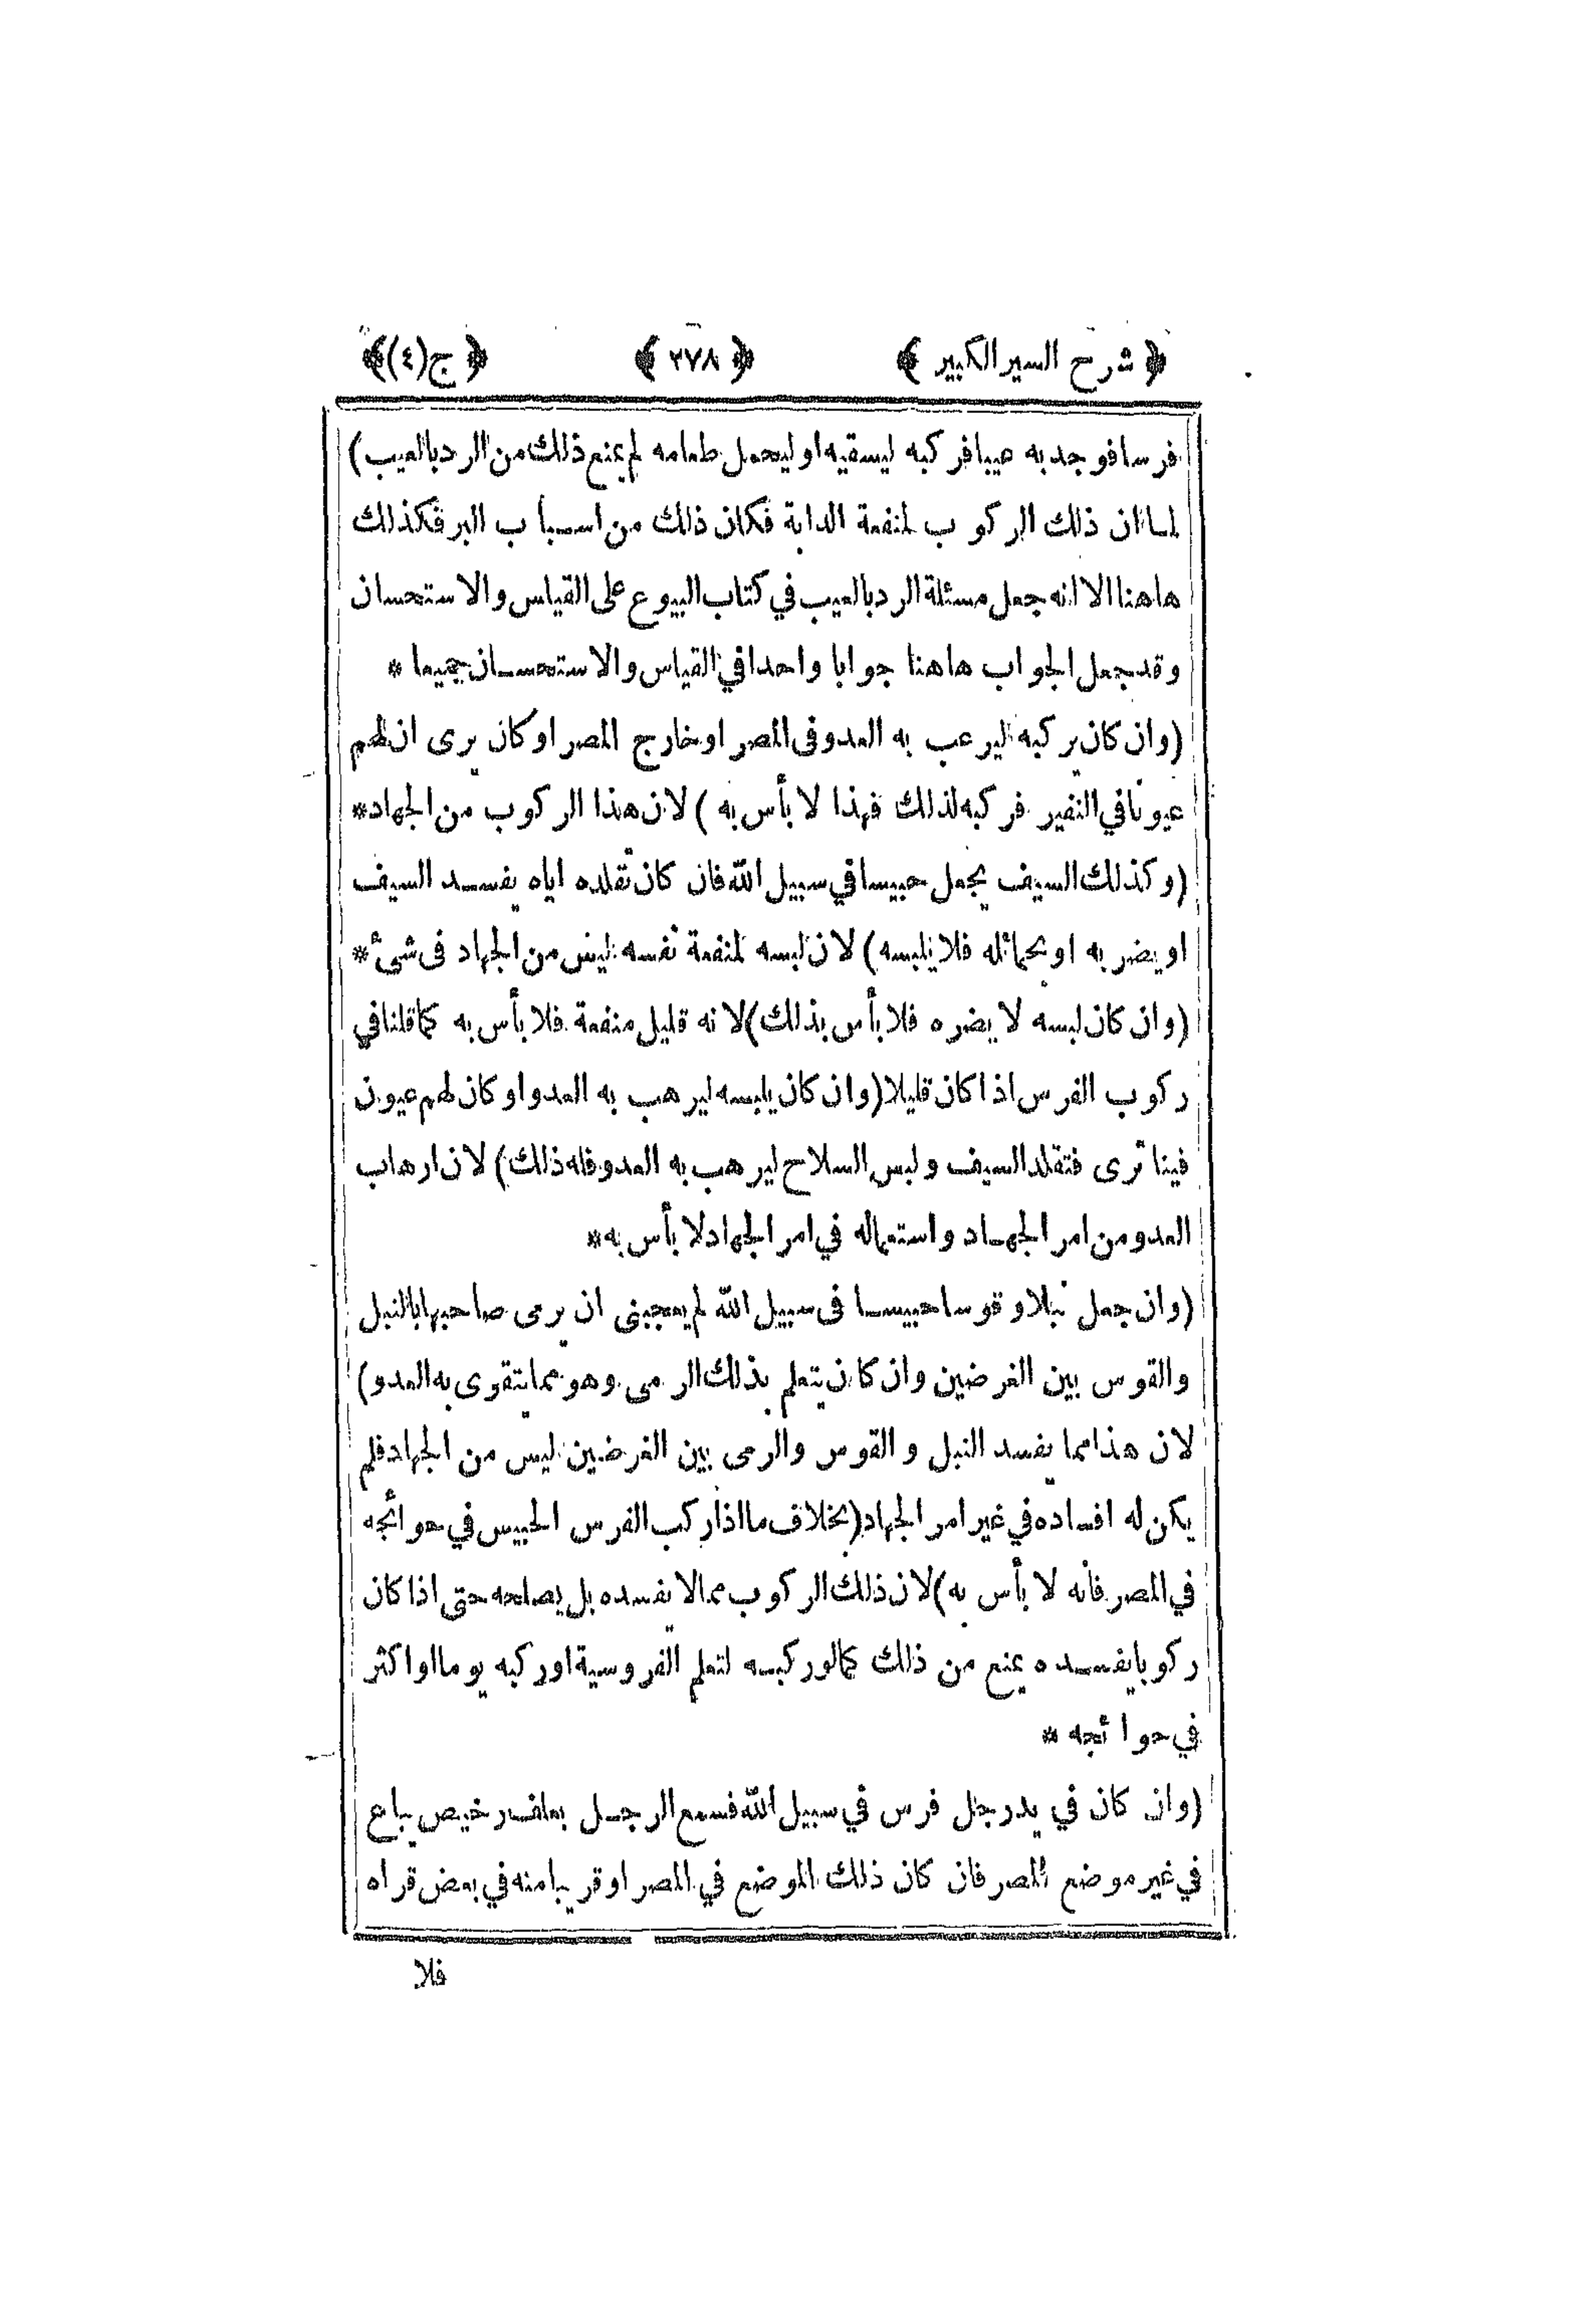 ﴿ شرح السير الكبير ﴾ ﴿ ٢٧٨ ﴾ ﴿ ج(٤)﴾
فرسا فوجد به عيبا فركبه ليسقيه او ليحمل طعامه لم يمنع ذلك من الرد بالعيب)
لما ان ذلك الركوب لمنفعة الدابة فكان ذلك من اسباب البر فكذلك
هاهنا الا انه جعل مسئلة الرد بالعيب في كتاب البيوع على القياس والاستحسان
وقد جعل الجواب هاهنا جوابا واحدا في القياس والاستحسان جميعا *
(وان كان يركبه ليرعب به العدو فى المصر او خارج المصر او كان يرى ان لهم
عيونا في النفير فركبه لذلك فهذا لا بأس به ) لان هذا الركوب من الجهاد*
(وكذلك السيف يجعل حبيسا في سبيل الله فان كان تقلده اياه يفسد السيف
او يضر به او بحمائله فلا يلبسه) لان لبسه لمنفعة نفسه ليس من الجهاد فى شئ*
(وان كان لبسه لا يضره فلا بأس بذلك)لانه قليل منفعة فلا بأس به كما قلنا في
ركوب الفرس اذا كان قليلا(وان كان يلبسه ليرهب به العدو او كان لهم عيون
فينا ترى فتقلد السيف ولبس السلاح ليرهب به العدو فله ذلك) لان ارهاب
العدو من امر الجهاد واستعماله في امر الجهاد لا بأس به*
(وان جعل نبلا وقوسا حبيسا فى سبيل الله لم يعجبنى ان يرمى صاحبها بالنبل
والقوس بين الغرضين وان كان يتعلم بذلك الرمى وهو مما يتقوى به العدو)
لان هذا مما يفسد النبل والقوس والرمى بين الغرضين ليس من الجهاد فلم
يكن له افساده في غير امر الجهاد(بخلاف ما اذا ركب الفرس الحبيس في حوائجه
في المصر فانه لا بأس به)لان ذلك الركوب مما لا يفسده بل يصلحه حتى اذا كان
ركوبا يفسده يمنع من ذلك كما لو ركبه لتعلم الفروسية او ركبه يوما او اكثر
في حوائجه *
(وان كان في يد رجل فرس في سبيل الله فسمع الرجل بعلف رخيص يباع
في غير موضع المصر فان كان ذلك الموضع في المصر او قريبا منه في بعض قراه
فلا